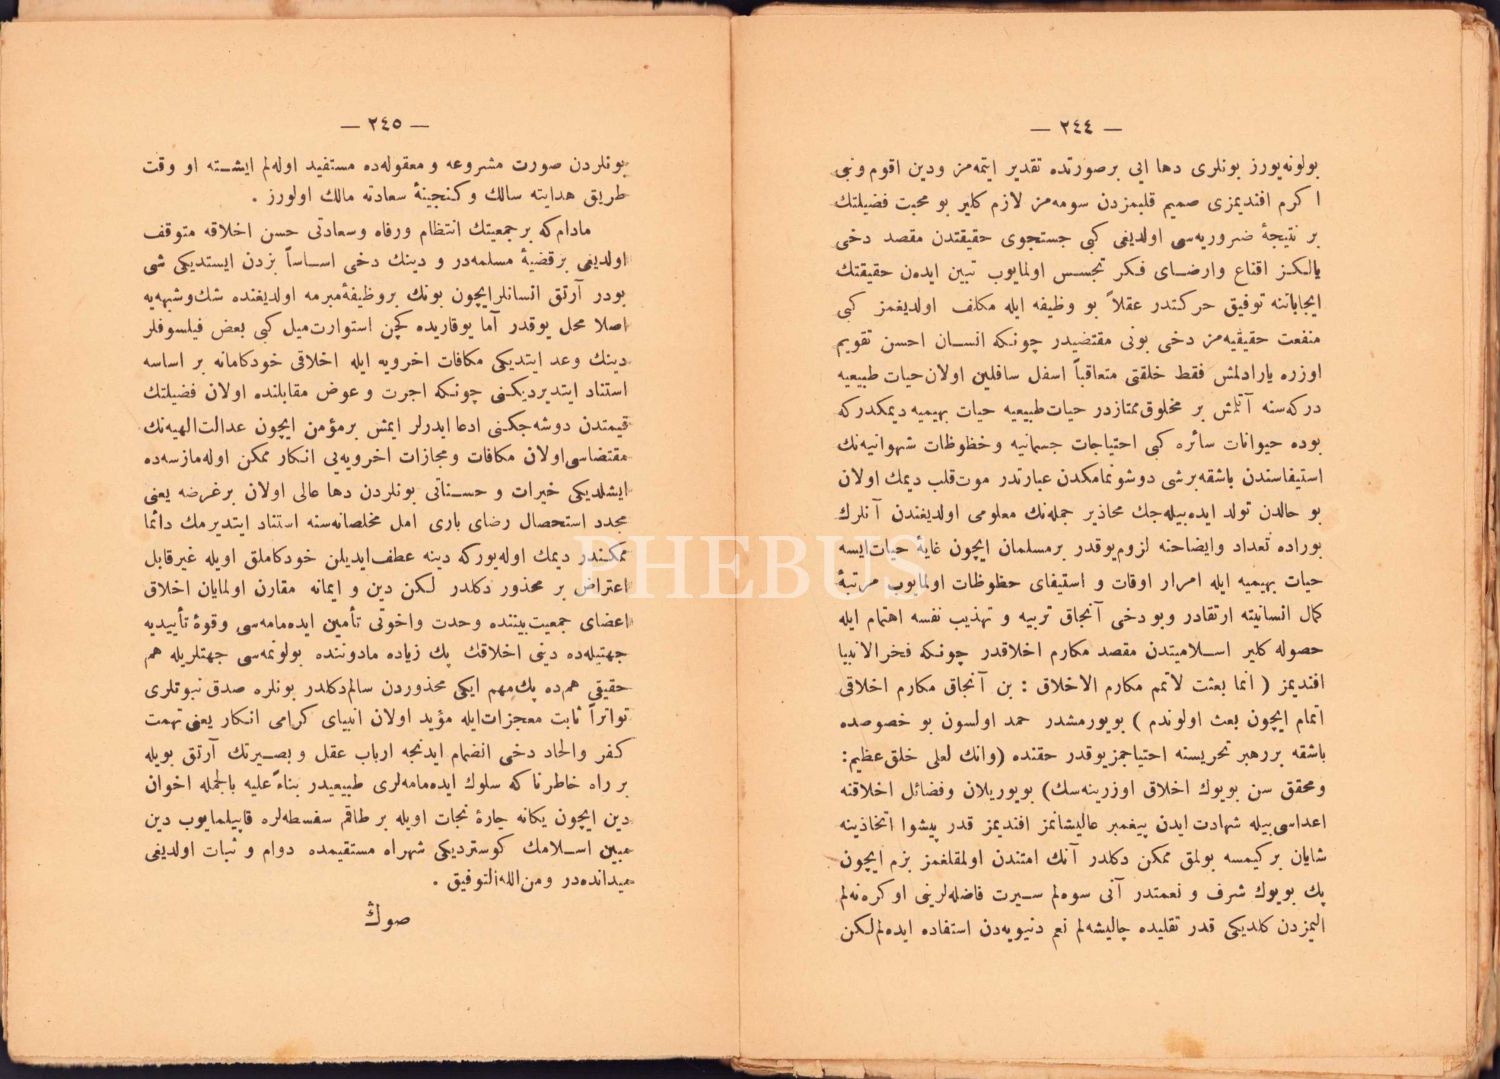 — ٢٤٤ —
بولونه‌یورز بونلری دها ایی برصورتده تقدیر ایتمه‌مز ودین اقوم ونبی
اکرم افندیمزی صمیم قلبمزدن سومه‌مز لازم کلیر بو محبت فضیلتك
بر نتیجهٔ ضروریه‌سی اولدیغی کبی جستجوی حقیقتدن مقصد دخی
یالکز اقناع وارضای فکر تجسس اولمایوب تبین ایده‌ن حقیقتك
ایجاباتنه توفیق حرکتدر عقلاً بو وظیفه ایله مکلف اولدیغمز کبی
منفعت حقیقیه‌مز دخی بونی مقتضیدر چونکه انسان احسن تقویم
اوزره یارادلمش فقط خلقتی متعاقباً اسفل سافلین اولان حیات طبیعیه
درکه‌سنه آتلمش بر مخلوق ممتازدر حیات طبیعیه حیات بهیمیه دیمکدرکه
بوده حیوانات سائره کبی احتیاجات جسمانیه و حظوظات شهوانیه‌نك
استیفاسندن باشقه برشی دوشونمامکدن عبارتدر موت قلب دیمك اولان
بو حالدن تولد ایده‌بیله‌جك محاذیر جمله‌نك معلومی اولدیغندن آنلرك
بوراده تعداد وایضاحنه لزوم یوقدر برمسلمان ایچون غایهٔ حیات ایسه
حیات بهیمیه ایله امرار اوقات و استیفای حظوظات اولمایوب مرتبهٔ
کمال انسانیته ارتقادر وبو دخی آنجاق تربیه و تهذیب نفسه اهتمام ایله
حصوله کلیر اسلامیتدن مقصد مکارم اخلاقدر چونکه فخرالانبیا
افندیمز ( انما بعثت لاتمم مکارم الاخلاق : بن آنجاق مکارم اخلاقی
اتمام ایچون بعث اولوندم ) بویورمشدر حمد اولسون بو خصوصده
باشقه بررهبر تحریسنه احتیاجمز یوقدر حقنده (وانك لعلی خلق عظیم:
ومحقق سن بویوك اخلاق اوزرینه‌سك) بویوریلان وفضائل اخلاقنه
اعداسی بیله شهادت ایدن پیغمبر عالیشانمز افندیمز قدر پیشوا اتخاذینه
شایان برکیمسه بولمق ممکن دکلدر آنك امتندن اولمقلغمز بزم ایچون
پك بویوك شرف و نعمتدر آنی سوه‌لم سیرت فاضله‌لرینی اوکره‌نه‌لم
الیمزدن کلدیکی قدر تقلیده چالیشه‌لم نعم دنیویه‌دن استفاده ایده‌لم لکن
— ٢٤٥ —
بونلردن صورت مشروعه و معقوله‌ده مستفید اوله‌لم ایشته او وقت
طریق هدایته سالك وکنجینهٔ سعادته مالك اولورز .
مادام که برجمعیتك انتظام ورفاه وسعادتی حسن اخلاقه متوقف
اولدیغی برقضیهٔ مسلمه‌در و دینك دخی اساساً بزدن ایستدیکی شی
بودر آرتق انسانلر ایچون بونك بروظیفهٔ مبرمه اولدیغنده شك وشبهه‌یه
اصلا محل یوقدر آما یوقاریده کچن استوارت میل کبی بعض فیلسوفلر
دینك وعد ایتدیکی مکافات اخرویه ایله اخلاقی خودکامانه بر اساسه
استناد ایتدیردیکنی چونکه اجرت و عوض مقابلنده اولان فضیلتك
قیمتدن دوشه‌جکنی ادعا ایدرلر ایمش برمؤمن ایچون عدالت الهیه‌نك
مقتضاسی اولان مکافات ومجازات اخرویه‌یی انکار ممکن اوله‌مازسه‌ده
ایشلدیکی خیرات و حسناتی بونلردن دها عالی اولان برغرضه یعنی
مجدد استحصال رضای باری امل مخلصانه‌سنه استناد ایتدیرمك دائما
ممکندر دیمك اوله‌یورکه دینه عطف ایدیلن خودکاملق اویله غیرقابل
اعتراض بر محذور دکلدر لکن دین و ایمانه مقارن اولمایان اخلاق
اعضای جمعیت بیننده وحدت واخوتی تأمین ایده‌مامه‌سی وقوهٔ تأییدیه
جهتیله‌ده دینی اخلاقك پك زیاده مادوننده بولونمه‌سی جهتلریله هم
حقیقی هم‌ده پك مهم ایکی محذوردن سالم دکلدر بونلره صدق نبوتلری
تواتراً ثابت معجزات ایله مؤید اولان انبیای کرامی انکار یعنی تهمت
کفر والحاد دخی انضمام ایدنجه ارباب عقل و بصیرتك آرتق بویله
بر راه خاطرناکه سلوك ایده‌مامه‌لری طبیعیدر بناءً علیه بالجمله اخوان
دین ایچون یکانه چارهٔ نجات اویله بر طاقم سفسطه‌لره قاپیلمایوب دین
مبین اسلامك کوستردیکی شهراه مستقیمده دوام و ثبات اولدیغی
میدانده‌در ومن الله التوفیق .
صوڭ
PHEBUS